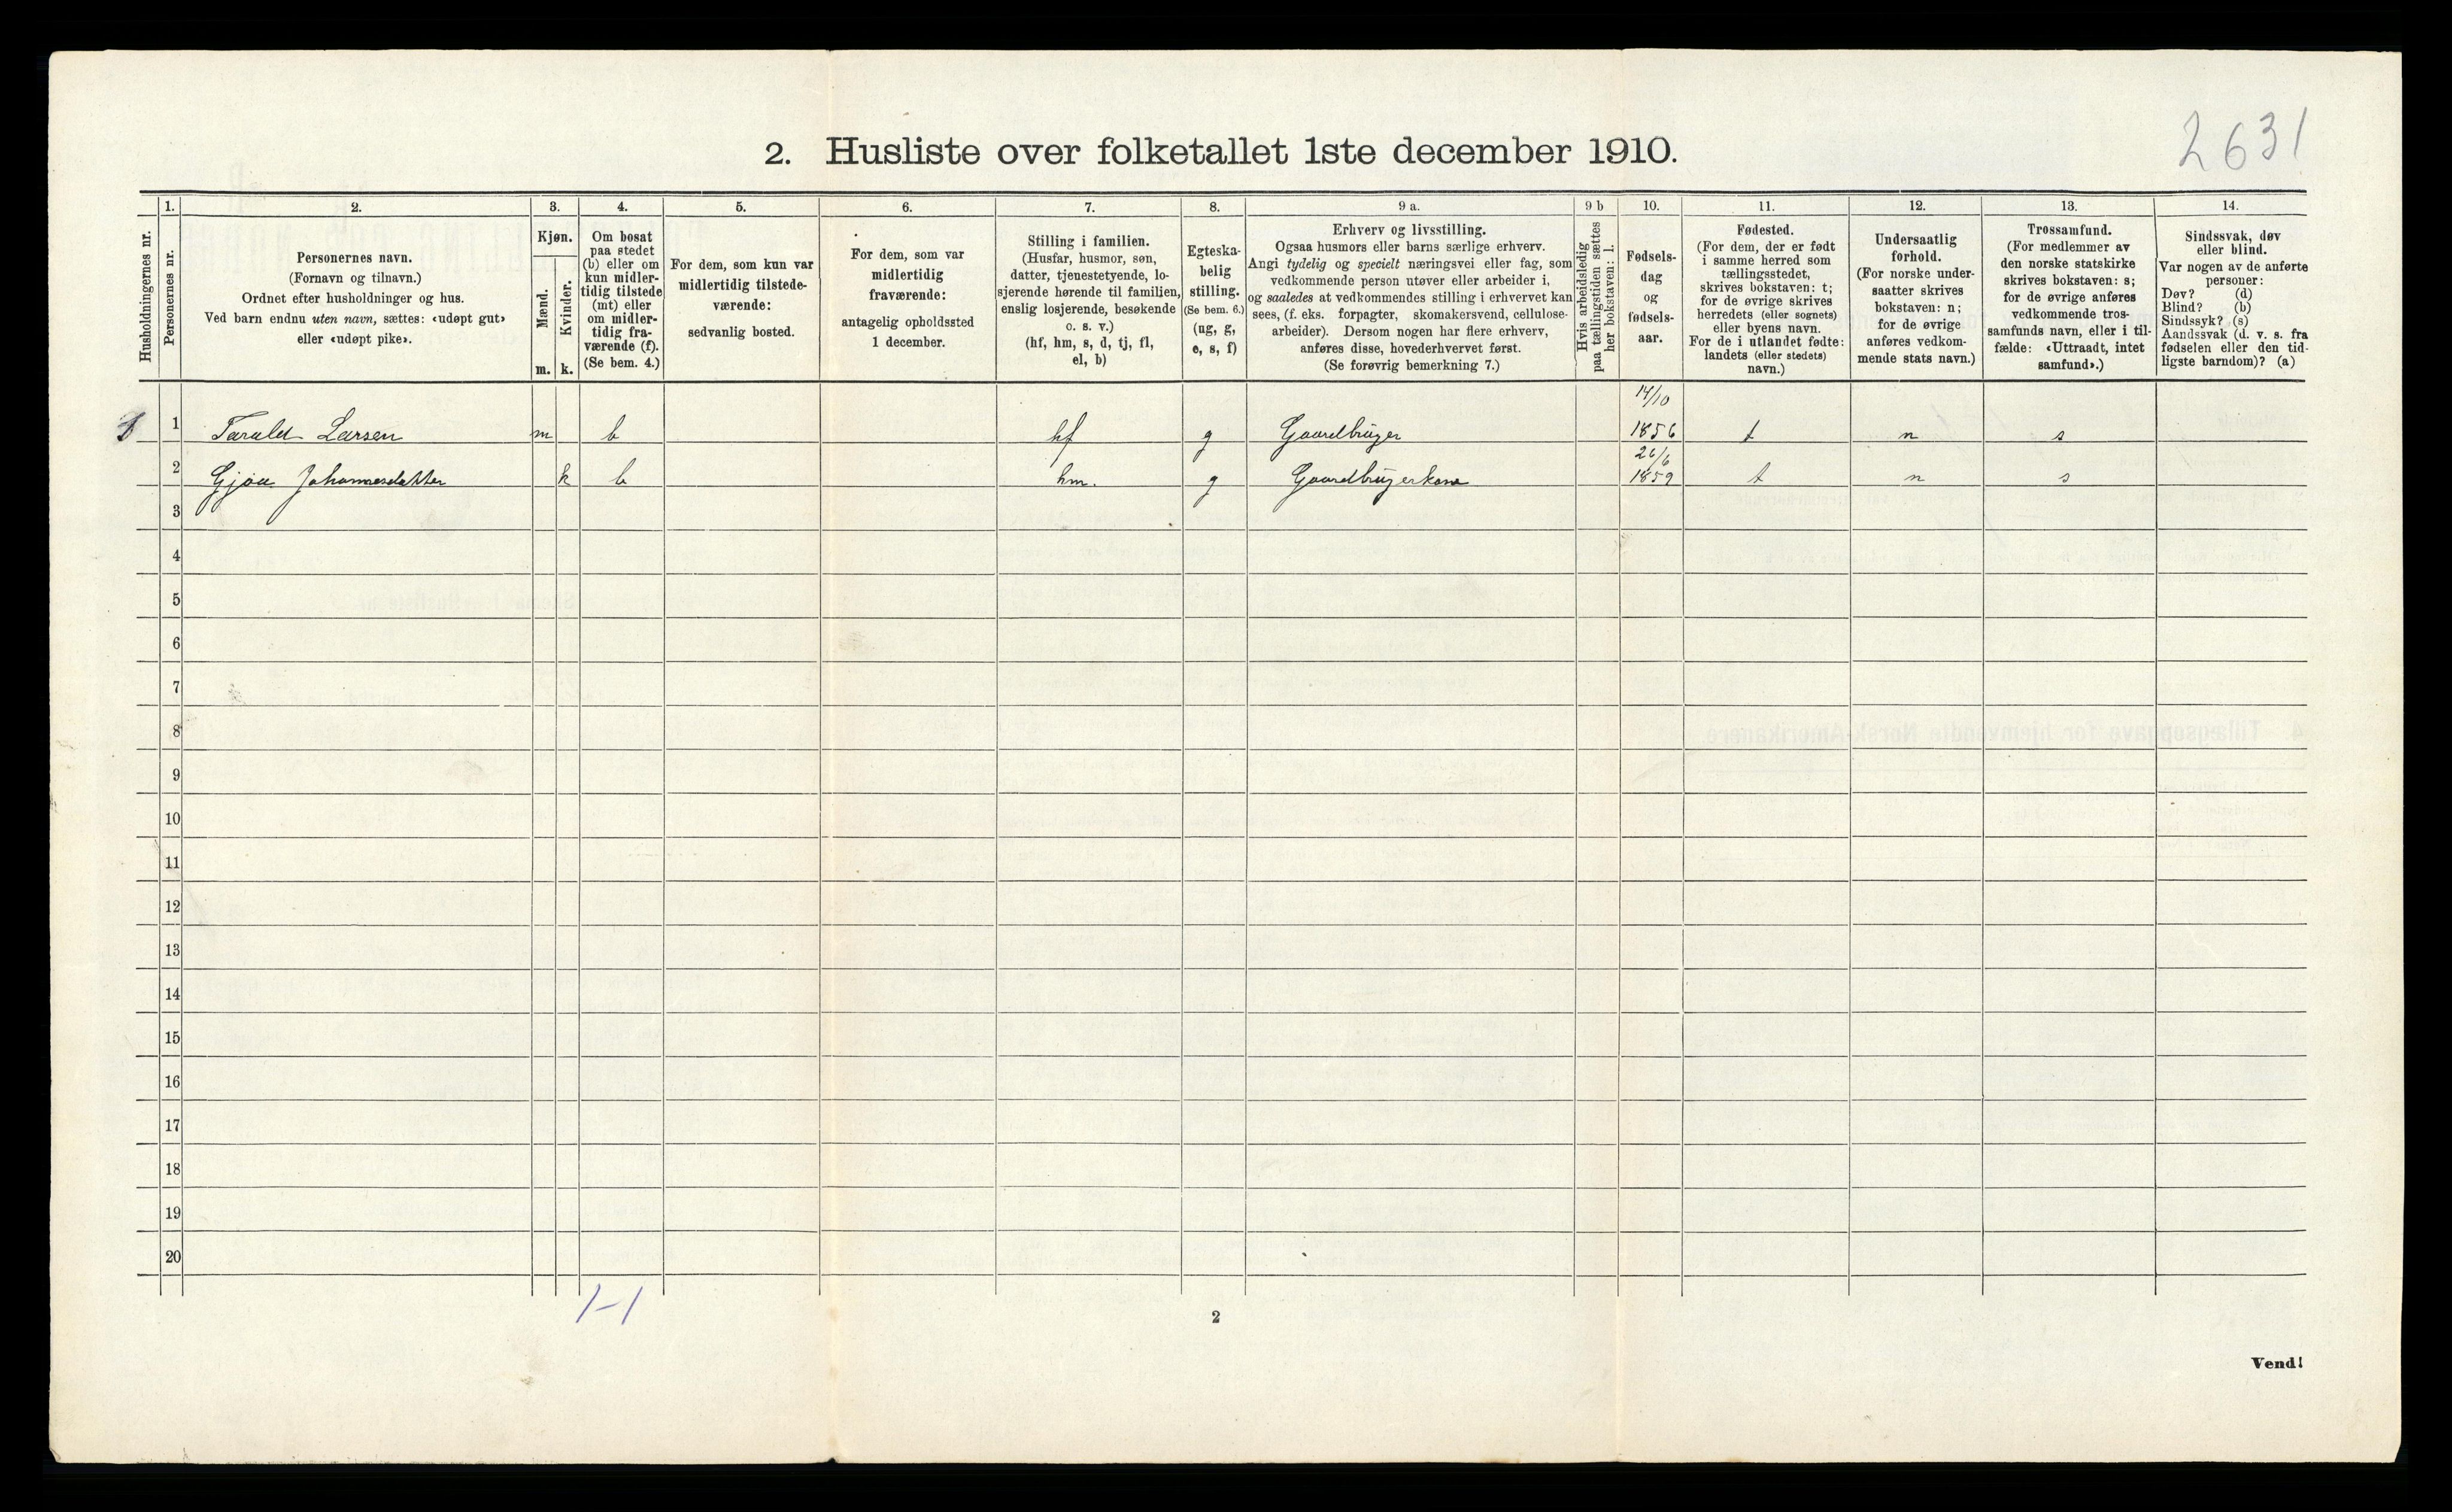 2631
2. Husliste over folketallet 1ste december 1910.
Husholdningernes nr.
1.
Personernes nr.
2.
Personernes navn.
(Fornavn og tilnavn.)
Ordnet efter husholdninger og hus.
Ved barn endnu uten navn, sættes: «udøpt gut»
eller «udøpt pike».
3.
Kjøn.
Mænd.
Kvinder.
m. k.
4.
Om bosat
paa stedet
(b) eller om
kun midler-
tidig tilstede
(mt) eller
om midler-
tidig fra-
værende (f).
(Se bem. 4.)
5.
For dem, som kun var
midlertidig tilstede-
værende:
sedvanlig bosted.
6.
For dem, som var
midlertidig
fraværende:
antagelig opholdssted
1 december.
7.
Stilling i familien.
(Husfar, husmor, søn,
datter, tjenestetyende, lo-
sjerende hørende til familien,
enslig losjerende, besøkende
o. s. v.)
(hf, hm, s, d, tj, fl,
el, b)
8.
Egteska-
belig
stilling.
(Se bem. 6.)
(ug, g,
e, s, f)
9 a.
Erhverv og livsstilling.
Ogsaa husmors eller barns særlige erhverv.
Angi tydelig og specielt næringsvei eller fag, som
vedkommende person utøver eller arbeider i,
og saaledes at vedkommendes stilling i erhvervet kan
sees, (f. eks. forpagter, skomakersvend, cellulose-
arbeider). Dersom nogen har flere erhverv,
anføres disse, hovederhvervet først.
(Se forøvrig bemerkning 7.)
9 b
Hvis arbeidsledig
paa tællingstiden sættes
her bokstaven: l.
10.
Fødsels-
dag
og
fødsels-
aar.
11.
Fødested.
(For dem, der er født
i samme herred som
tællingsstedet,
skrives bokstaven: t;
for de øvrige skrives
herredets (eller sognets)
eller byens navn.
For de i utlandet fødte:
landets (eller stedets)
navn.)
12.
Undersaatlig
forhold.
(For norske under-
saatter skrives
bokstaven: n;
for de øvrige
anføres vedkom-
mende stats navn.)
13.
Trossamfund.
(For medlemmer av
den norske statskirke
skrives bokstaven: s;
for de øvrige anføres
vedkommende tros-
samfunds navn, eller i til-
fælde: «Uttraadt, intet
samfund».)
14.
Sindssvak, døv
eller blind.
Var nogen av de anførte
personer:
Døv? (d)
Blind? (b)
Sindssyk? (s)
Aandssvak (d. v. s. fra
fødselen eller den tid-
ligste barndom)? (a)
14/10
1 Tarald Larsen m b hf g Gaardbruger 1856 t n s
26/6
2 Gjøa Johannesdatter k b hm. g Gaardbrugerkone 1859 t n s
3
4
5
6
7
8
9
10
11
12
13
14
15
16
17
18
19
20
1-1
2
Vend!